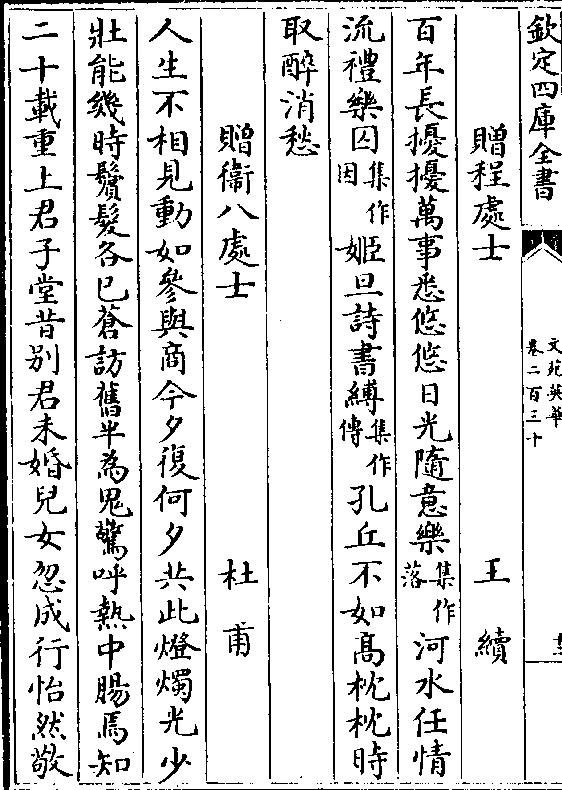 欽定四庫全書
文苑英華
卷二百三十
贈程處士 王績
百年長擾擾萬事悉悠悠日光隨意樂集作落河水任情
流禮樂囚集作因姬旦詩書縛集作傳孔丘不如髙枕枕時
取醉消愁
贈衞八處士 杜甫
人生不相見動如參與商今夕復何夕共此燈燭光少
壯能幾時鬢髮各已蒼訪舊半為鬼驚呼熱中腸焉知
二十載重上君子堂昔别君未婚兒女忽成行怡然敬